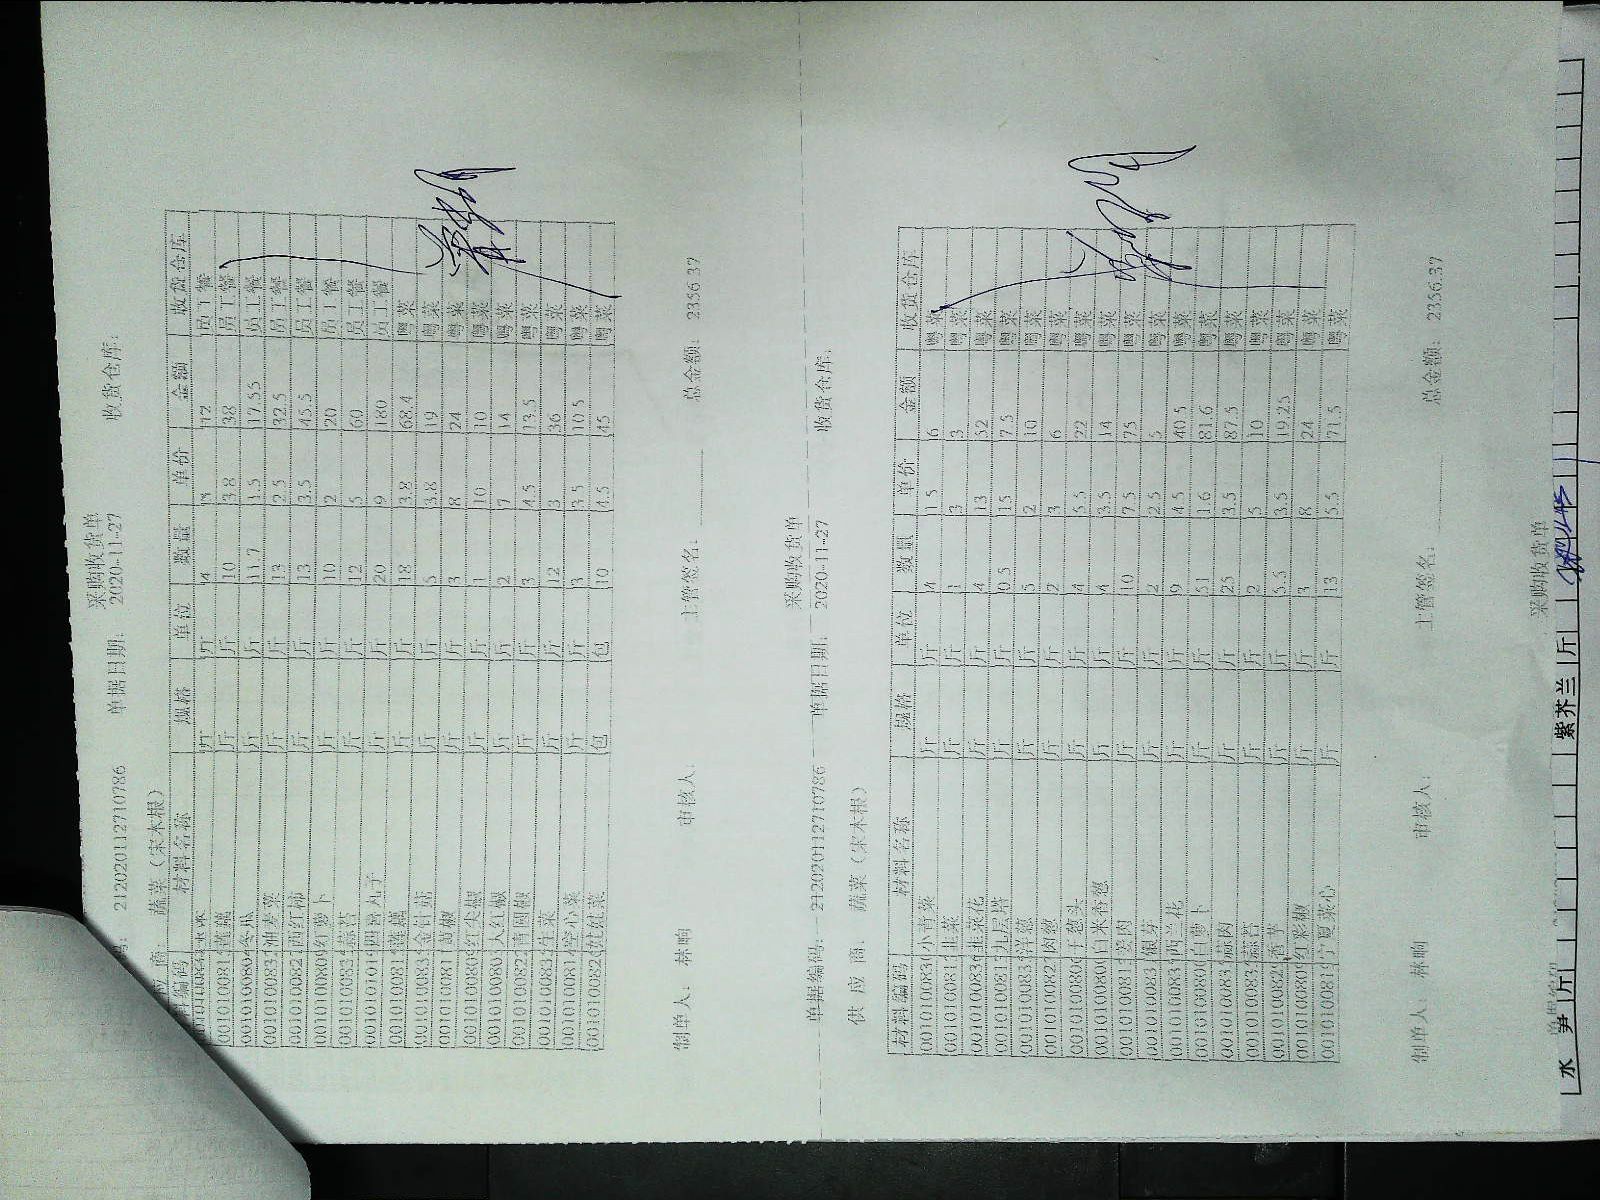 采购收货单
212020112710786 单据日期: 2020-11-27 收货仓库:
应 商: 蔬菜（宋木根）
编码 材料名称 规格 单位 数量 单价 金额 收货仓库
斤 斤 4 3 12 员工餐
00101008 莲藕 斤 斤 10 3.8 38 员工餐
001010080 冬瓜 斤 斤 11.7 1.5 17.55 员工餐
001010083 油麦菜 斤 斤 13 2.5 32.5 员工餐
001010082 西红柿 斤 斤 13 3.5 45.5 员工餐
001010080 红萝卜 斤 斤 10 2 20 员工餐
001010083 蒜苔 斤 斤 12 5 60 员工餐
001010101 四喜丸子 斤 斤 20 9 180 员工餐
001010081 莲藕 斤 斤 18 3.8 68.4 粤菜
001010083 金针菇 斤 斤 5 3.8 19 粤菜
001010081 斤 斤 3 8 24 粤菜
001010080 红尖椒 斤 斤 1 10 10 粤菜
001010080 大红椒 斤 斤 2 7 14 粤菜
001010082 青圆椒 斤 斤 3 4.5 13.5 粤菜
001010083 生菜 斤 斤 12 3 36 粤菜
001010081 空心菜 斤 斤 3 3.5 10.5 粤菜
001010082 娃娃菜 包 包 10 4.5 45 粤菜
制单人: 林晌 审核人: 主管签名: 总金额: 2356.37
采购收货单
单据编码: 212020112710786 单据日期: 2020-11-27 收货仓库:
供 应 商: 蔬菜（宋木根）
材料编码 材料名称 规格 单位 数量 单价 金额 收货仓库
001010083 小青菜 斤 斤 4 1.5 6 粤菜
001010081 韭菜 斤 斤 1 3 3 粤菜
001010083 韭菜花 斤 斤 4 13 52 粤菜
001010081 九层塔 斤 斤 0.5 15 7.5 粤菜
001010083 洋葱 斤 斤 5 2 10 粤菜
001010082 肉葱 斤 斤 2 3 6 粤菜
001010080 干葱头 斤 斤 4 5.5 22 粤菜
001010080 白米香葱 斤 斤 4 3.5 14 粤菜
001010081 姜肉 斤 斤 10 7.5 75 粤菜
001010083 银芽 斤 斤 2 2.5 5 粤菜
001010083 西兰花 斤 斤 9 4.5 40.5 粤菜
001010080 白萝卜 斤 斤 51 1.6 81.6 粤菜
001010083 蒜肉 斤 斤 25 3.5 87.5 粤菜
001010083 蒜苔 斤 斤 2 5 10 粤菜
001010082 香芋 斤 斤 5.5 3.5 19.25 粤菜
001010080 红彩椒 斤 斤 3 8 24 粤菜
001010081 宁夏菜心 斤 斤 13 5.5 71.5 粤菜
制单人: 林晌 审核人: 主管签名: 总金额: 2356.37
采购收货单
水 笋 斤 紫芥兰 斤